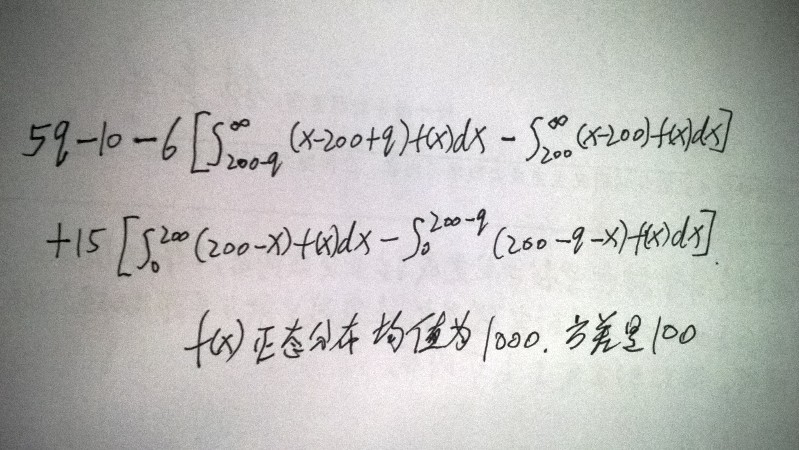 5q-10-6[∫_{200-q}^{∞}(x-200+q)f(x)dx-∫_{200}^{∞}(x-200)f(x)dx]
+15[∫_0^{200}(200-x)f(x)dx-∫_0^{200-q}(200-q-x)f(x)dx].
f(x)正态分布 均值为1000.方差是100